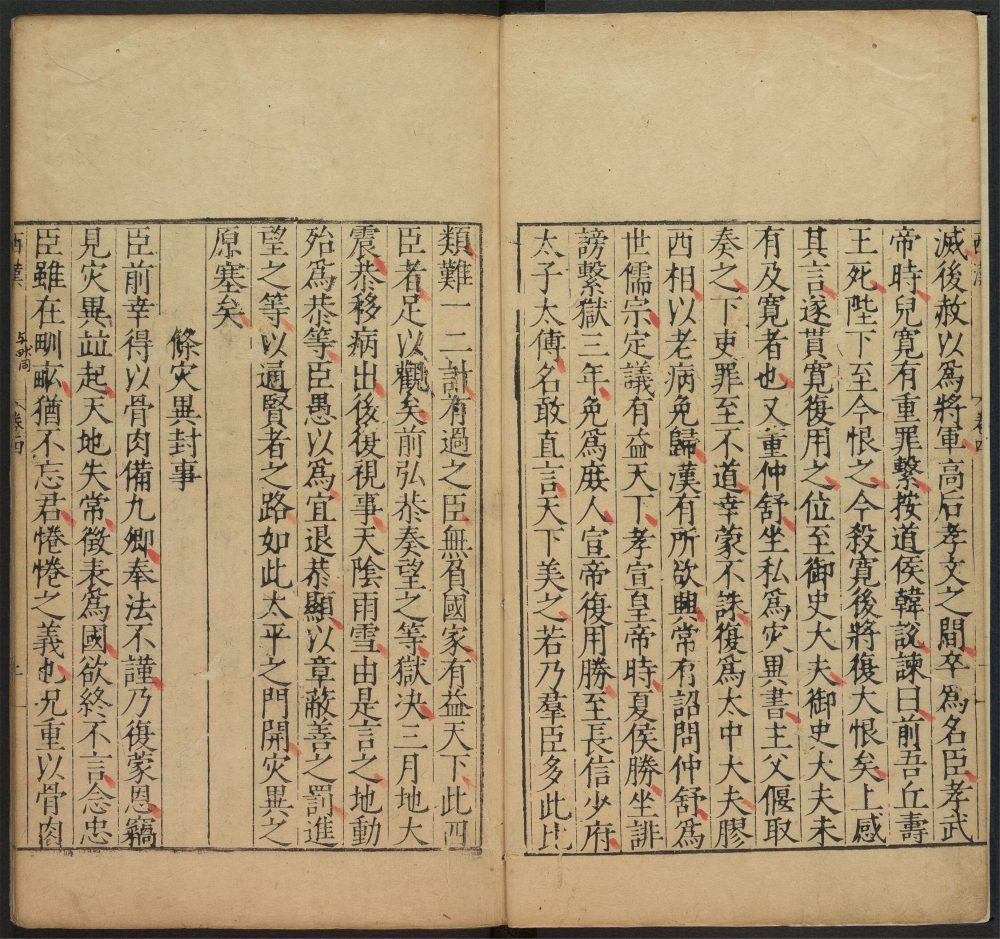 滅後赦以爲將軍高后孝文之間卒爲名臣孝武
帝時兒寬有重罪繫按道侯韓說諫曰前吾丘壽
王死陛下至今恨之今殺寬後將復大恨矣上感
其言遂貰寬復用之位至御史大夫御史大夫未
有及寬者也又董仲舒坐私爲灾異書主父偃取
奏之下吏罪至不道幸蒙不誅復爲太中大夫膠
西相以老病免歸漢有所欲興常有詔問仲舒爲
世儒宗定議有益天下孝宣皇帝時夏侯勝坐誹
謗繫獄三年免爲庻人宣帝復用勝至長信少府
太子太傅名敢直言天下美之若乃羣臣多此比
類難一二計有過之臣無負國家有益天下此四
臣者足以觀矣前弘恭奏望之等獄决三月地大
震恭移病出後復視事天陰雨雪由是言之地動
殆爲恭等臣愚以爲宜退恭顯以章蔽善之罰進
望之等以通賢者之路如此太平之門開灾異之
原塞矣
條灾異封事
臣前幸得以骨肉備九卿奉法不謹乃復蒙恩竊
見灾異並起天地失常徵表爲國欲終不言念忠
臣雖在甽畝猶不忘君惓惓之義也况重以骨肉
西漢
卷四